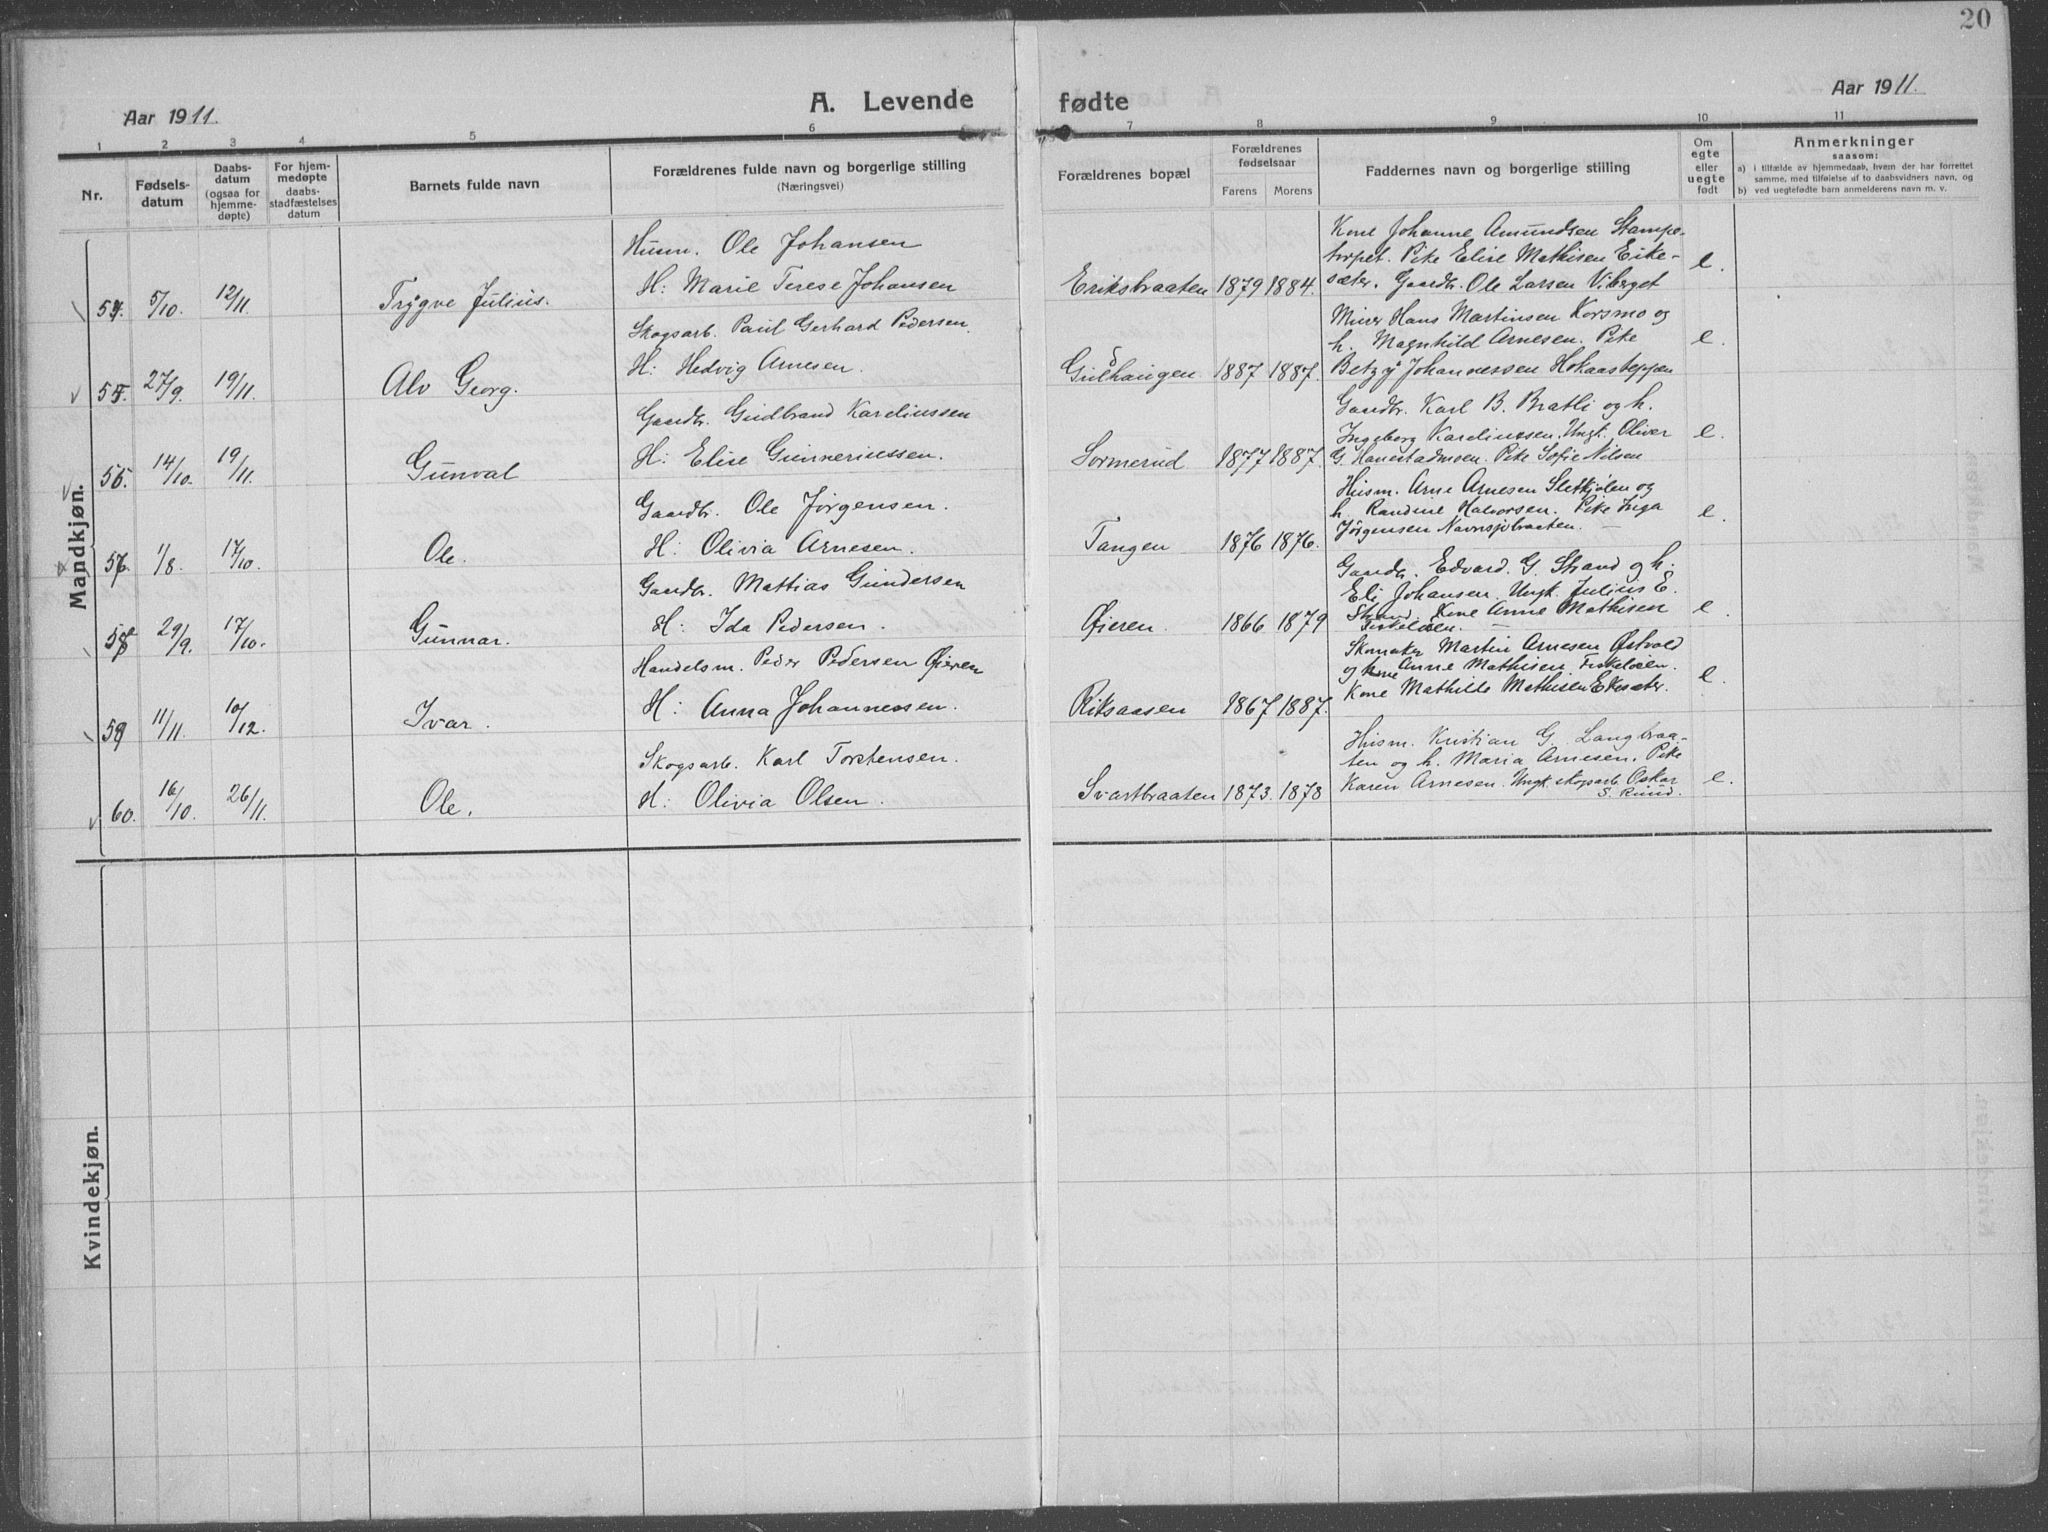 20
Aar 1911.
A. Levende
fødte
Aar 1911.
1 2 3 4 5 6 7 8 9 10 11
Nr.
Fødsels-
datum
Daabs-
datum
(ogsaa for
hjemme-
døpte)
For hjem-
medøpte
daabs-
stadfæstelses
datum
Barnets fulde navn
Forældrenes fulde navn og borgerlige stilling
(Næringsvei)
Forældrenes bopæl
Forældrenes
fødselsaar
Farens Morens
Faddernes navn og borgerlige stilling
Om
egte
eller
uegte
født
Anmerkninger
saasom:
a) i tilfælde av hjemmedaab, hvem der har forrettet
samme, med tilføielse af to daabsvidners navn, og
b) ved uegtefødte barn anmelderens navn m. v.
Mandkjøn.
54. 5/10. 12/11. Trygve Julius.
Husm. Ole Johansen
H: Marie Terese Johansen
Eriksbraaten 1879 1884.
Kone Johanne Amundsen Stampe-
torpet. Pike Elise Mathisen Eike-
sæter. Gaardbr. Ole Larsen Viberget
e.
55. 27/9. 19/11. Alv Georg.
Skogsarb. Paul Gerhard Pedersen.
H: Hedvig Arnesen.
Gulhaugen. 1887 1887.
Miner Hans Martinsen Korsmo og
h. Magnhild Arnesen. Pike
Betzy Johannessen Hokaasteppen
e.
56. 14/10. 19/11. Gunval
Gaardbr. Gudbrand Kareliussen
H: Elise Gunneriussen.
Sormerud 1877 1887.
Gaardbr. Karl B. Bratli og h.
Ingeborg Kareliussen. Ungk. Oliver
G. Hanestadmoen. Pike Sofie Nilsen
e.
57. 1/8. 17/10. Ole.
Gaardbr. Ole Jørgensen.
H: Olivia Arnesen.
Tangen 1876 1876.
Husm. Arne Arnesen Sletkjølen og
h. Randine Halvorsen. Pike Inga
Jørgensen Navnsjøbraaten.
e.
58. 29/9. 17/10. Gunnar.
Gaardbr. Mattias Gundersen
H: Ida Pedersen.
Øieren. 1866 1879
Gaardbr. Edvard. G. Strand og h.
Eli Johansen. Ungk. Julius E.
Strand. Kone Anne Mathisen
Fiskeløen.
e.
59. 11/11. 10/12. Ivar.
Handelsm. Peder Pedersen Øieren
H: Anna Johannessen.
Riksaasen 1867 1887.
Skomaker Martin Arnesen Østvold
og kone Anne Mathisen Fiskeløen.
Kone Mathilde Mathisen Ekesæter.
e.
60. 16/10. 26/11. Ole.
Skogsarb. Karl Torstensen.
H: Olivia Olsen.
Svartbraaten 1873. 1878
Husm. Kristian G. Langbraa-
ten og h. Maria Arnesen. Pike
Karen Arnesen. Ungk. skogsarb. Oskar
S. Rund.
e.
Kvindekjøn.